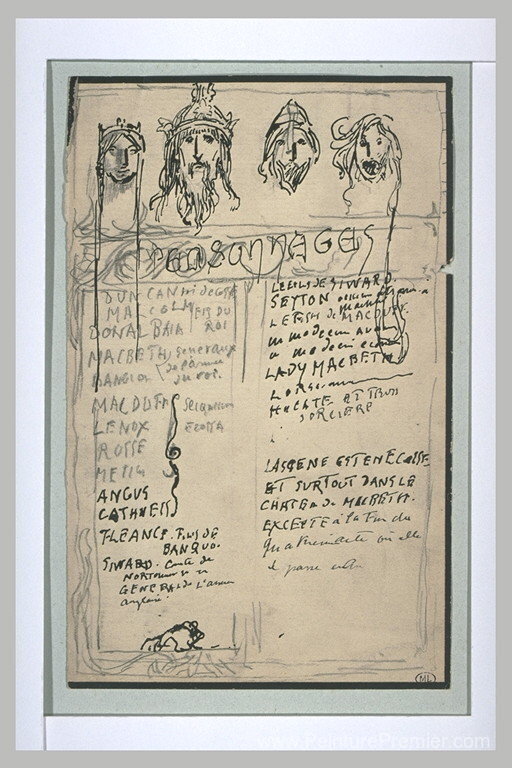 PERSONNAGES
DUNCAN roi de
MALCOLM FILS DU
DONALBAIN ROI
MACBETH Generaux
BANQUO de l'armee
du roi.
MACDUFF Seigneurs
LENOX ECOSSE
ROSSE
ANGUS
CATHNESS
FLEANCE. FILS DE
BANQUO.
SIWARD. Comte de
GENERAL DE L'armee
anglaise.
LE FILS DE SIWARD.
SEYTON
LE FILS de MACDUFF.
un medecin
un medecin
LADY MACBETH
HECATE ET TROIS
SORCIERE
LA SCENE EST EN ECOSSE
ET SURTOUT DANS LE
CHATEAU de MACBETH.
EXCEPTE à la Fin du
qu où elle
se passe
ML
www.PeinturePremier.com